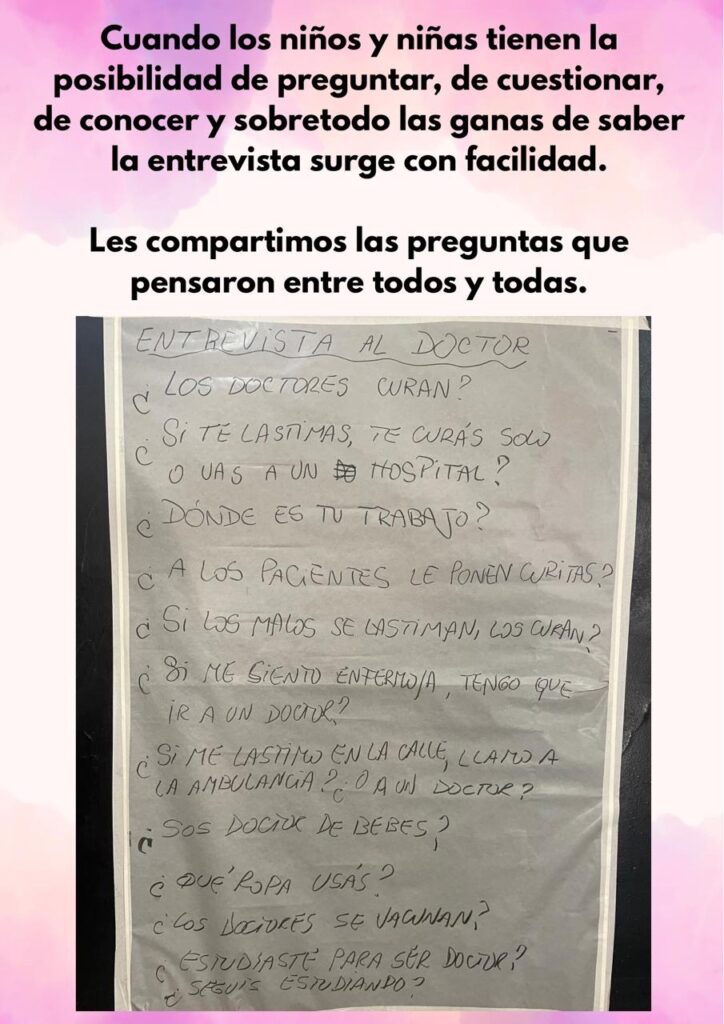 Cuando los niños y niñas tienen la
posibilidad de preguntar, de cuestionar,
de conocer y sobretodo las ganas de saber
la entrevista surge con facilidad.
Les compartimos las preguntas que
pensaron entre todos y todas.
ENTREVISTA AL DOCTOR
¿LOS DOCTORES CURAN?
¿Si TE LASTIMAS, TE CURÁS SOLO
O VAS A UN HOSPITAL?
¿DÓNDE ES TU TRABAJO?
¿A LOS PACIENTES LE PONEN CURITAS?
¿Si LOS MALOS SE LASTIMAN, LOS CURAN?
¿Si ME SIENTO ENFERMO/A, TENGO QUE
IR A UN DOCTOR?
¿Si ME LASTIMO EN LA CALLE, LLAMO A
LA AMBULANCIA? ¿O A UN DOCTOR?
¿SOS DOCTOR DE BEBES?
¿QUÉ ROPA USÁS?
¿LOS DOCTORES SE VACUNAN?
¿ESTUDIASTE PARA SER DOCTOR?
¿SEGUIS ESTUDIANDO?